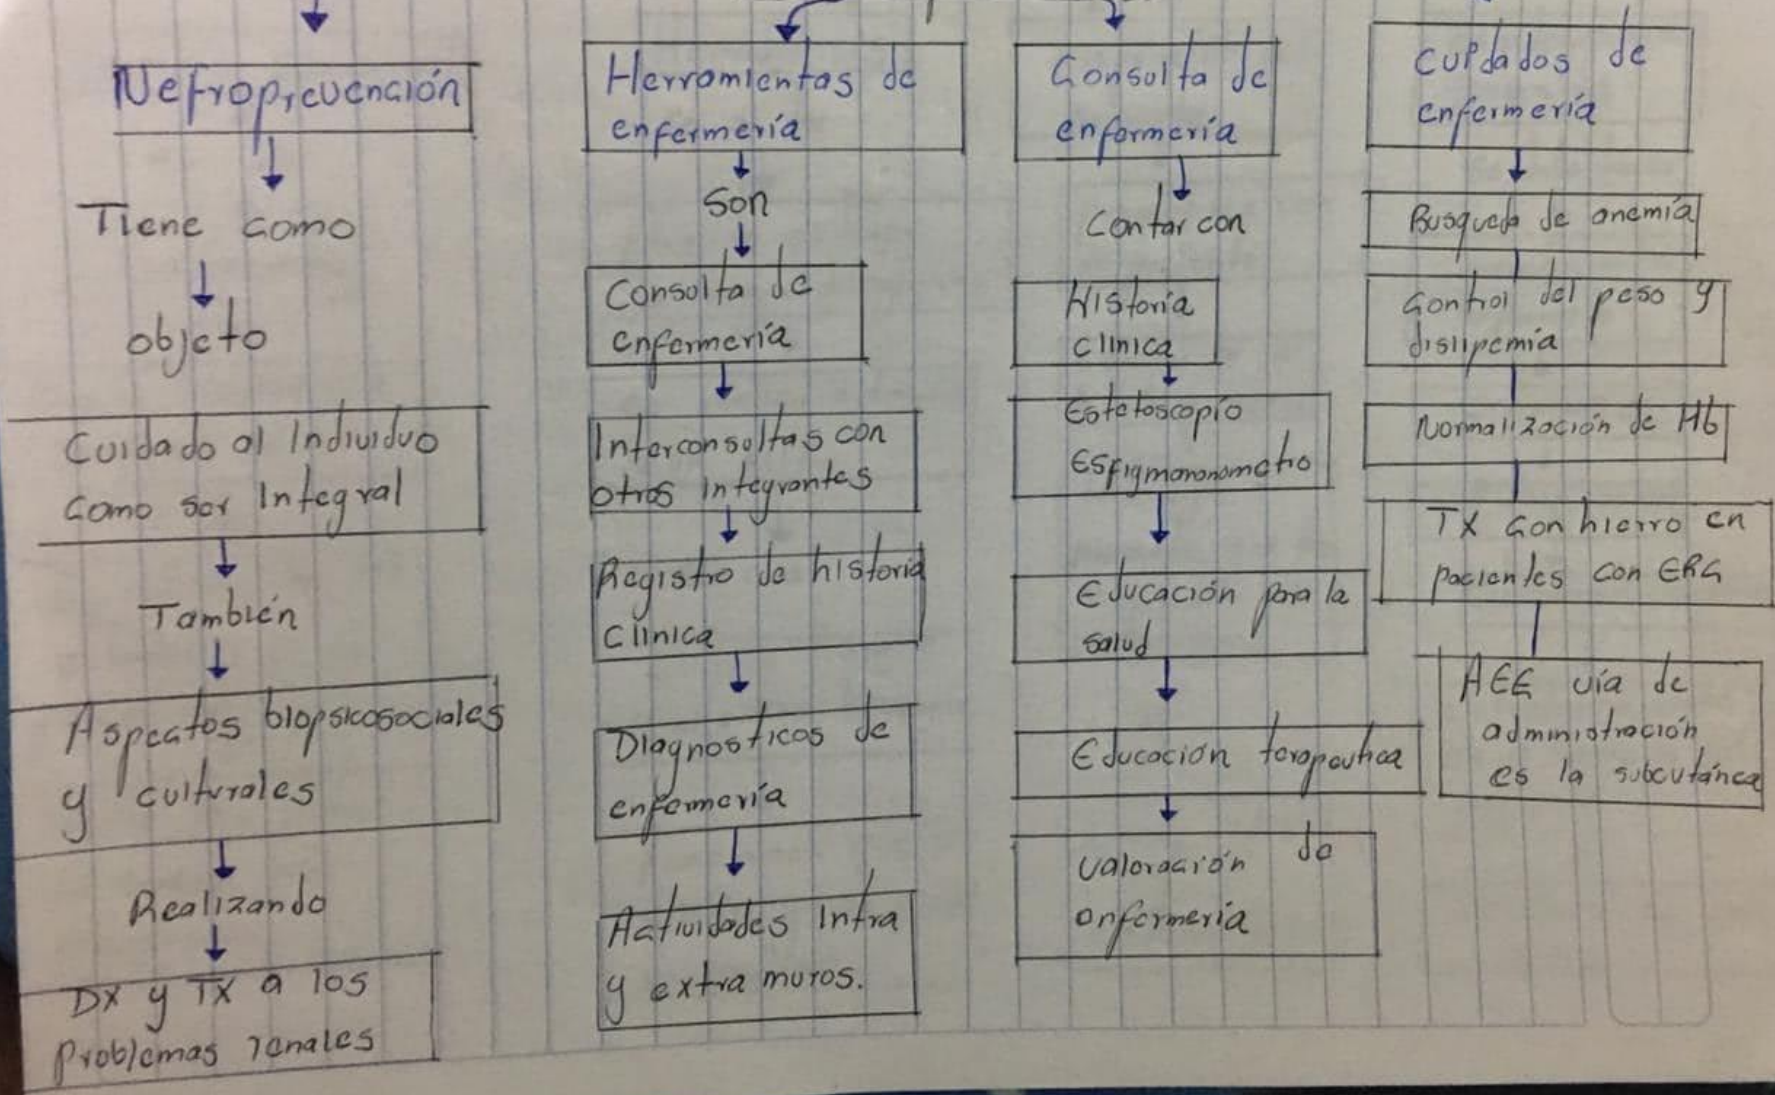 Nefroprevención
Tiene como
objeto
Cuidado al Individuo
como ser Integral
También
Aspectos biopsicosociales
y culturales
Realizando
DX y TX a los
Problemas renales
Herramientas de
enfermería
Son
Consulta de
enfermería
Interconsultas con
otros integrantes
Registro de historia
Clínica
Diagnosticos de
enfermería
Actividades Intra
y extra muros.
Consulta de
enfermería
Contar con
Historia
clínica
Estetoscopio
Esfigmononometro
Educación para la
salud
Educación terapeutica
valoración de
enfermería
Cuidados de
enfermería
Busqueda de anemia
Control del peso y
dislipemia
Normalización de Hb
TX con hierro en
pacientes con ERC
AEE vía de
administración
es la subcutánea